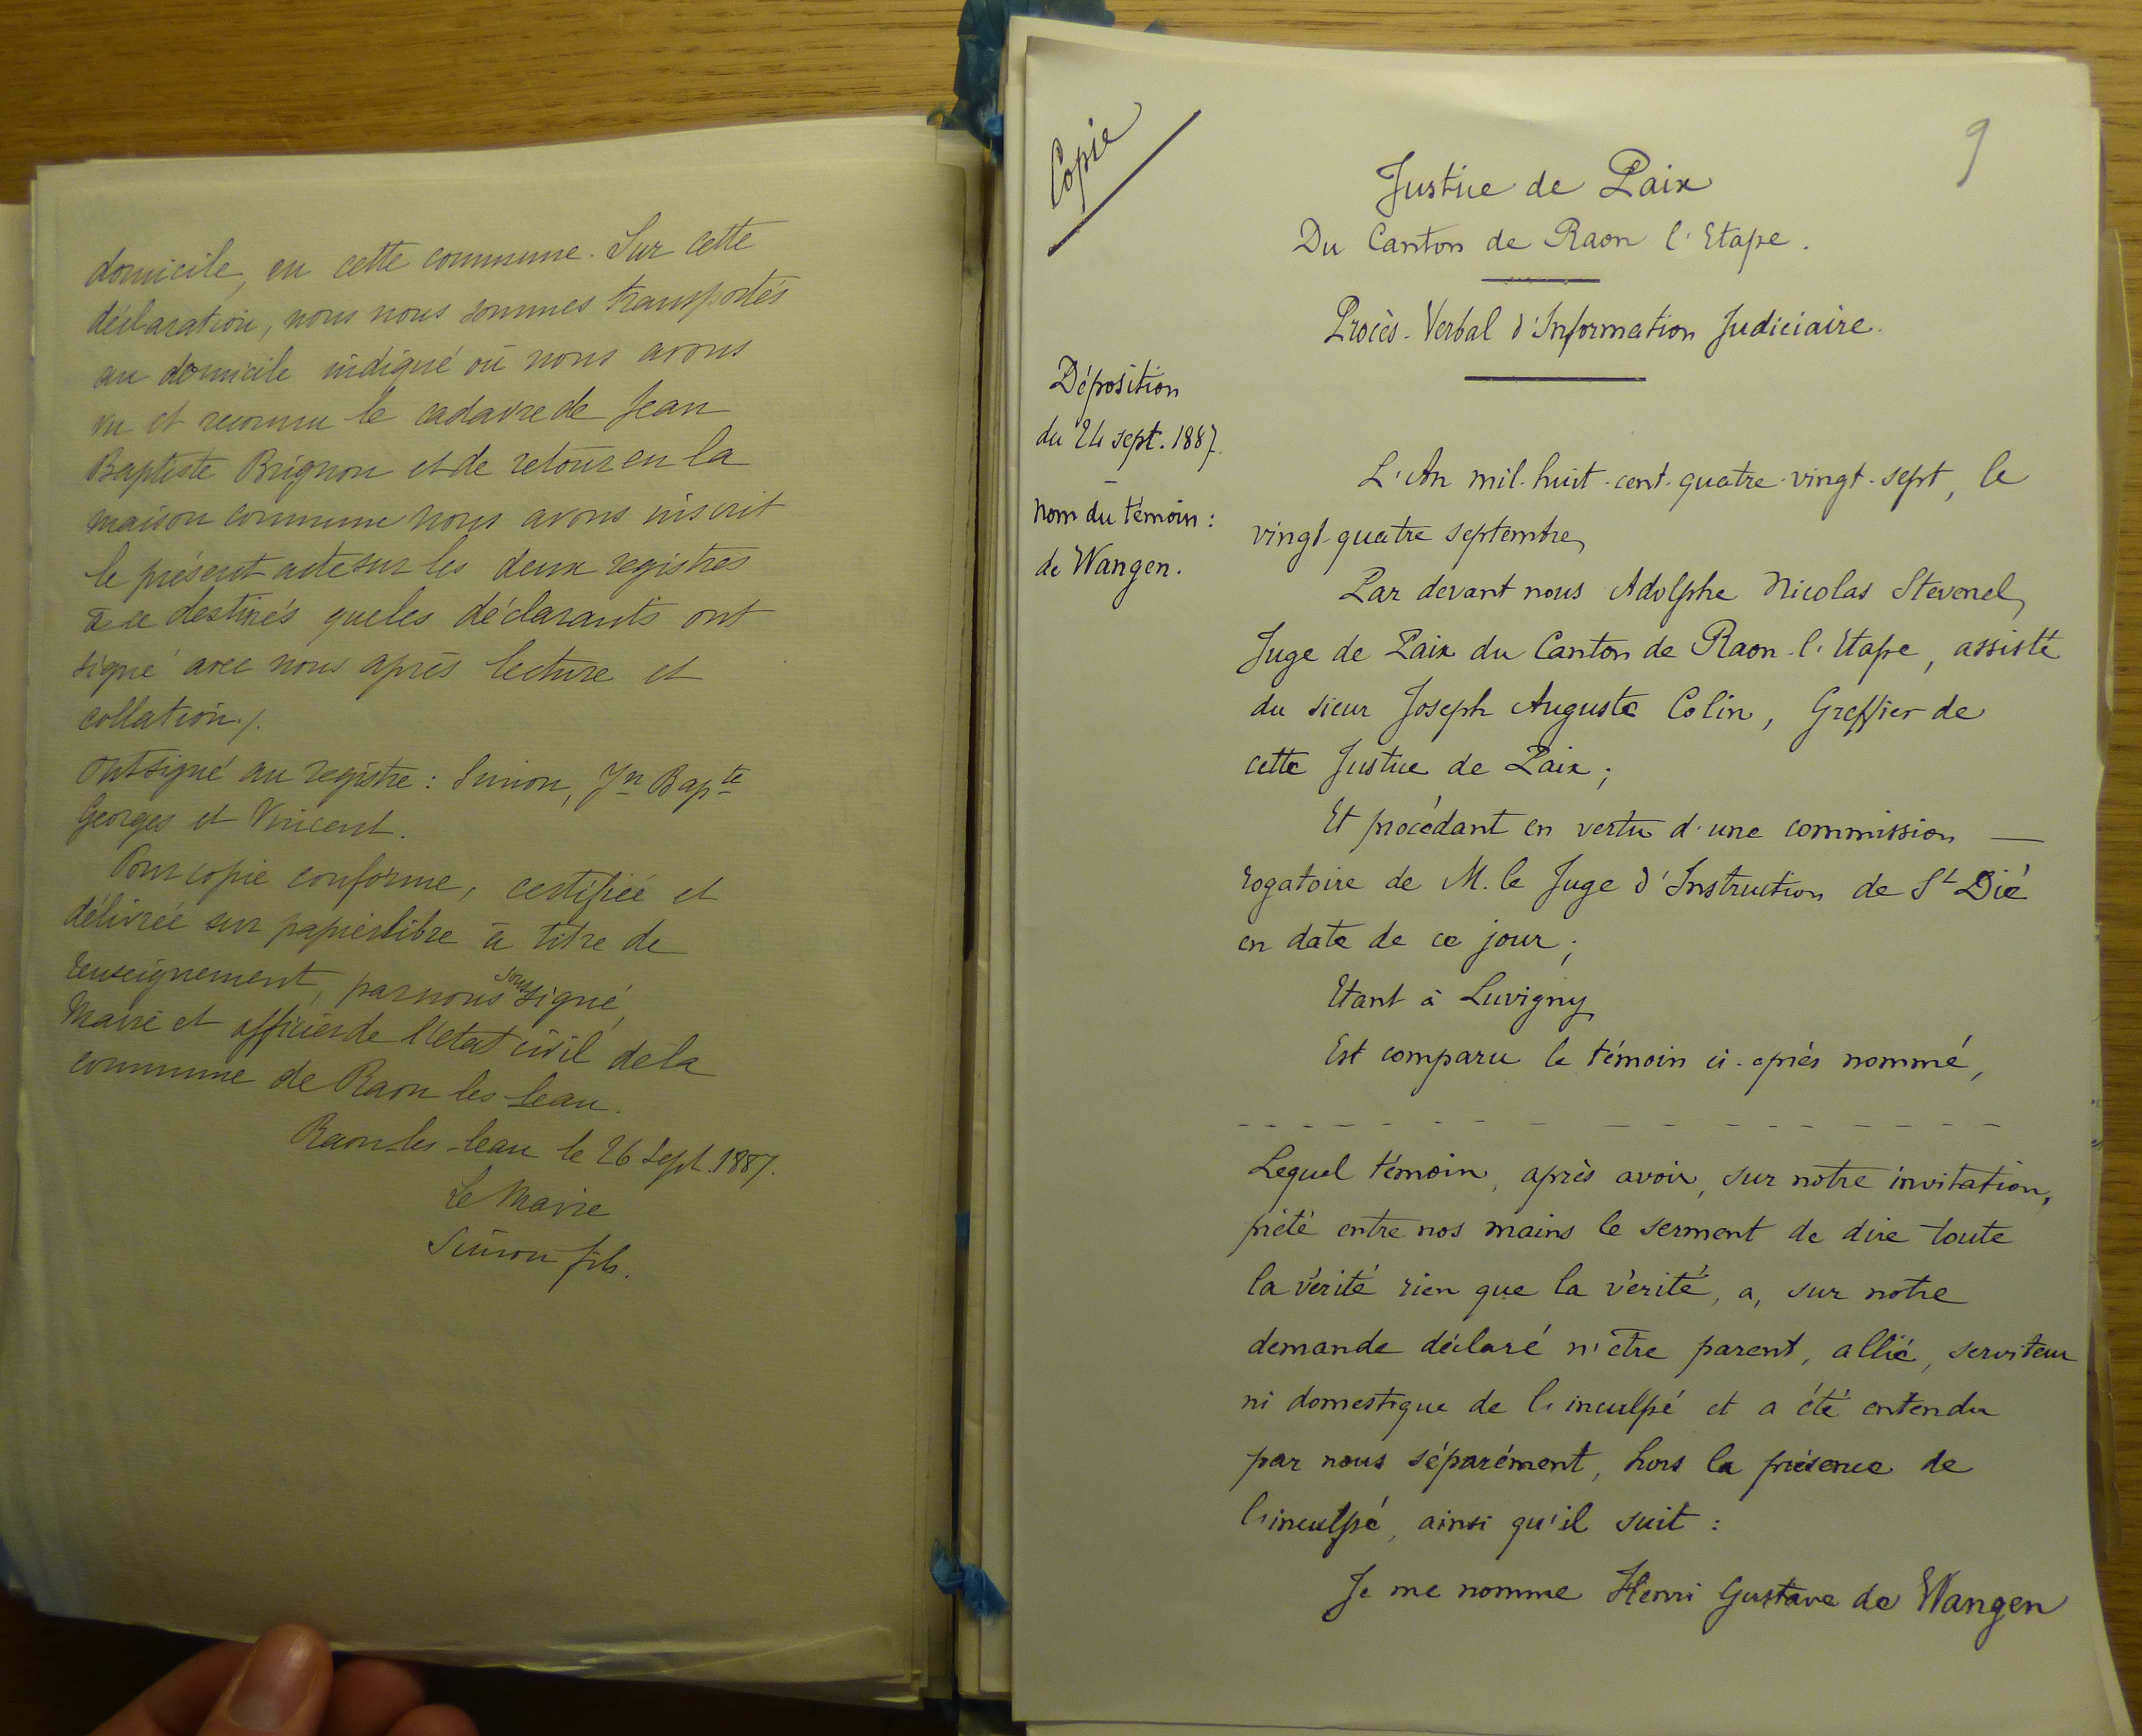 domicile, en cette commune. Sur cette
déclaration, nous nous sommes transportés
au domicile indiqué où nous avons
vu et reconnu le cadavre de Jean
Baptiste Brignon et de retour en la
maison commune nous avons inscrit
le présent acte sur les deux registres
à ce destinés que les déclarants ont
signé avec nous après lecture et
collation ./.
Ont signé au registre : Simon, Jn Bapte
Georges et Vincent.
Pour copie conforme, certifiée et
délivrée sur papier libre à titre de
renseignement, par nous soussigné,
Maire et officier de l'état civil de la
commune de Raon les leau.
Raon-les-leau le 26 Sept. 1887.
Le Maire
Simon fils.
Copie
9
Justice de Paix
Du Canton de Raon l'Etape.
Procès-Verbal d'Information Judiciaire.
Déposition
du 24 sept. 1887.
nom du témoin :
de Wangen.
L'An mil-huit-cent-quatre-vingt-sept, le
vingt-quatre septembre,
Par devant nous Adolphe Nicolas Stevenel,
Juge de Paix du Canton de Raon-l'Etape, assisté
du sieur Joseph Auguste Colin, Greffier de
cette Justice de Paix ;
Et procédant en vertu d'une commission —
rogatoire de M. le Juge d'Instruction de St Dié
en date de ce jour ;
Etant à Luvigny
Est comparu le témoin ci-après nommé,
Lequel témoin, après avoir, sur notre invitation,
prêté entre nos mains le serment de dire toute
la vérité rien que la vérité, a, sur notre
demande déclaré n'être parent, allié, serviteur
ni domestique de l'inculpé et a été entendu
par nous séparément, hors la présence de
l'inculpé, ainsi qu'il suit :
Je me nomme Henri Gustave de Wangen